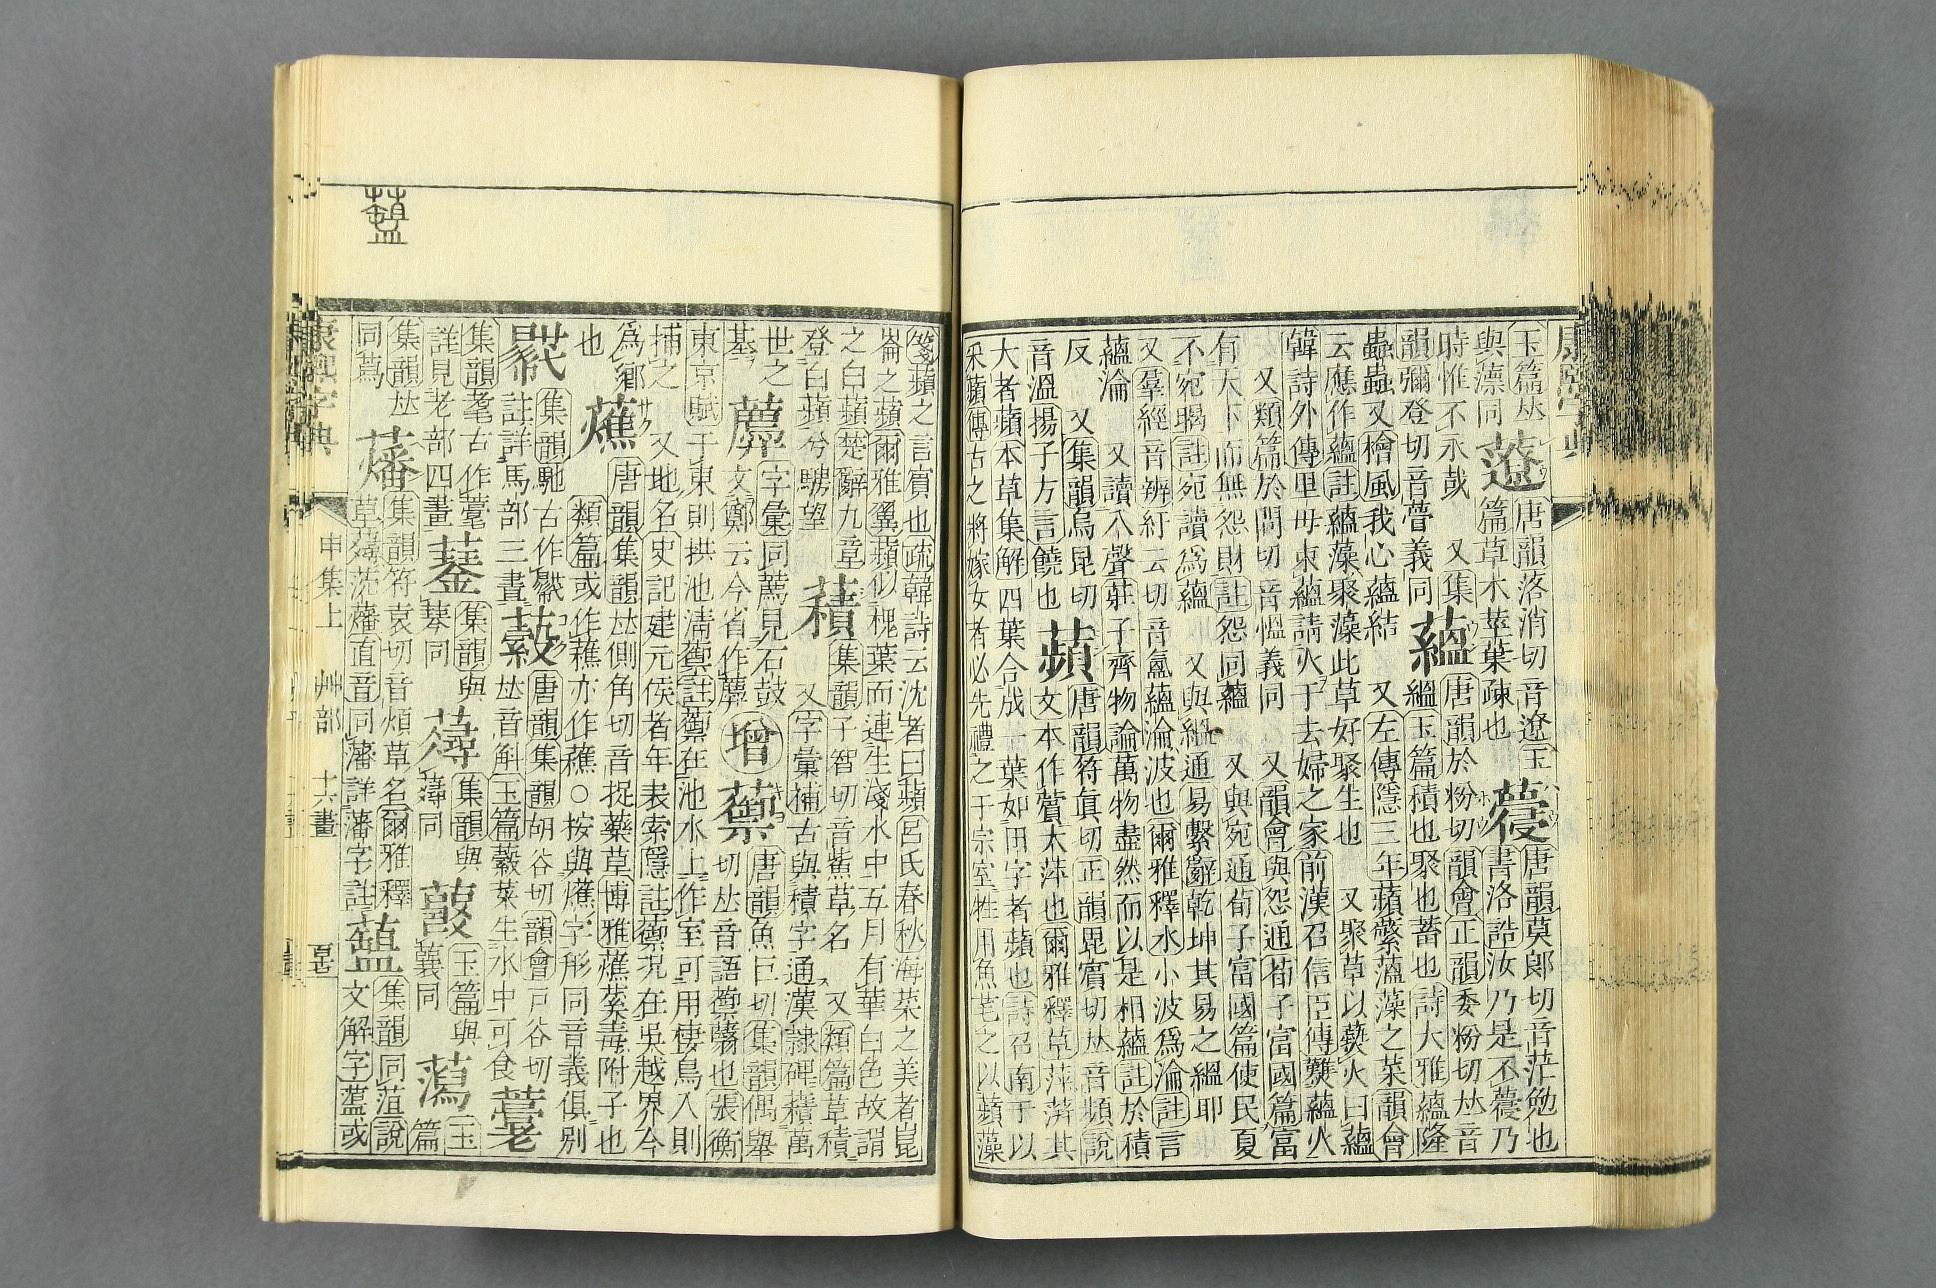 玉篇𠀤
與藨同
薞
唐韻落消切音遼玉
篇草木莖葉疎也
蘉
唐韻莫郞切音茫勉也
書洛誥汝乃是不蘉乃
時惟不永哉 又集
韻彌登切音瞢義同
蘊
唐韻於粉切韻會正韻委粉切𠀤音
縕玉篇積也聚也蓄也詩大雅蘊隆
蟲蟲又檜風我心蘊結 又左傳隱三年蘋蘩薀藻之菜韻會
云應作蘊註蘊藻聚藻此草好聚生也 又聚草以爇火曰蘊
韓詩外傳里母束蘊請火于去婦之家前漢召信臣傳爇蘊火
又類篇於問切音慍義同 又韻會與怨通荀子富國篇富
有天下而無怨財註怨同蘊 又與宛通荀子富國篇使民夏
不宛暍註宛讀爲蘊 又與縕通易繫辭乾坤其易之縕耶
又羣經音辨紆云切音氳蘊淪波也爾雅釋水小波爲淪註言
蘊淪 又讀入聲莊子齊物論萬物盡然而以是相蘊註於積
反 又集韻烏昆切
音溫揚子方言饒也
蘋
唐韻符眞切正韻毘賓切𠀤音頻說
文本作薲大萍也爾雅釋草萍蓱其
大者蘋本草集解四葉合成一葉如田字者蘋也詩召南于以
采蘋傳古之將嫁女者必先禮之于宗室牲用魚芼之以蘋藻
箋蘋之言賓也疏韓詩云沈者曰蘋呂氏春秋海菜之美者崑
崙之蘋爾雅翼蘋似槐葉而連生淺水中五月有華白色故謂
之白蘋楚辭九章
登白蘋兮騁望
𧂐
集韻子智切音蕉草名 又類篇草積
又字彙補古與積字通漢隸碑𧂐萬
世之
基
薦
字彙同薦見石鼓
文鄭云今省作薦
增
蘌
唐韻魚巨切集韻偶舉
切𠀤音語蘌蘛也張衡
東京賦于東則拱池淸蘌註蘌在池水上作室可用棲鳥入則
捕之 又地名史記建元侯者年表索隱註蘌況在吳越界今
爲鄕
也
蘸
唐韻集韻𠀤側角切音捉藥草博雅蘸葇毒附子也
類篇或作穛亦作蘸○按與𤒅字形同音義俱別
集韻馳古作
註詳馬部三畫
蘔
唐韻集韻胡谷切韻會戸谷切
𠀤音斛玉篇蘔菜生水中可食
集韻耄古作薹
詳見老部四畫
集韻與
同
集韻與
同
玉篇與
蘘同
蔿
玉
篇
集韻𠀤
同蔿
蕃
集韻符袁切音煩草名爾雅釋
草薃莎蕃直音同藩詳藩字註
蘁
集韻同菹說
文解字菹或
康熙字典
申集上
艸部
十六畫